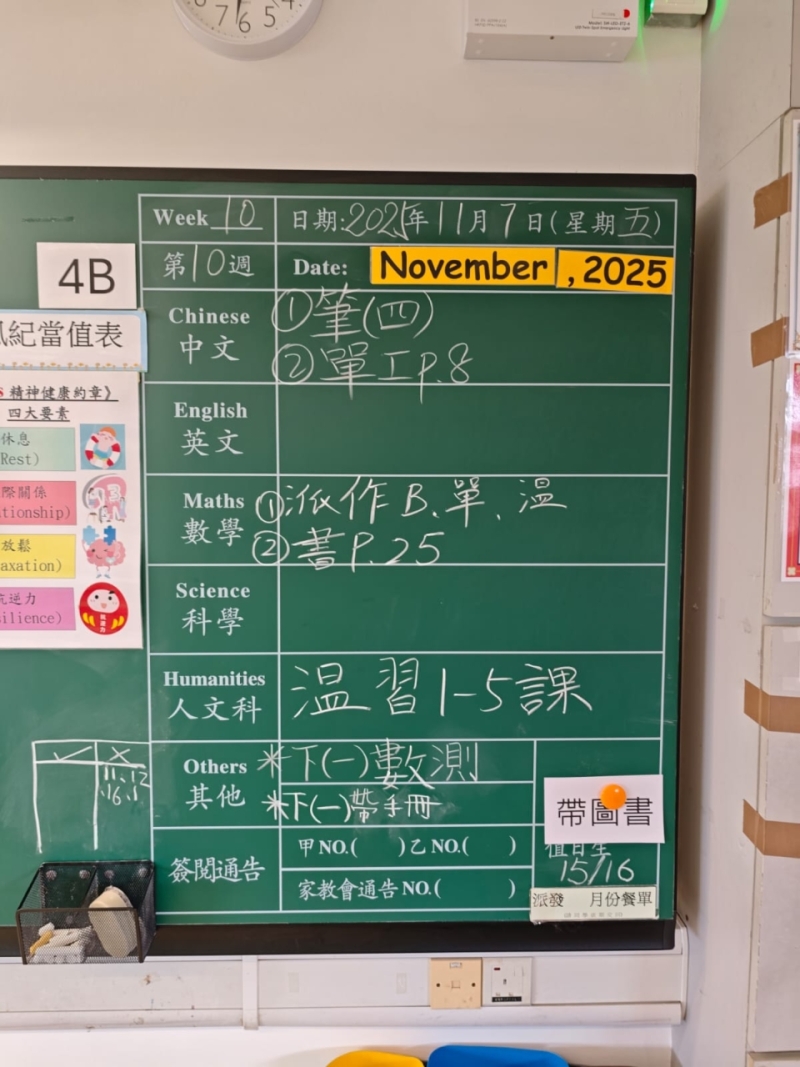 7 6 5
Week 10
日期:2025年11月7日(星期五)
第10週
Date: November , 2025
4B
紀當值表
精神健康約章》
四大要素
休息
Rest)
際關係
ationship)
放鬆
axation)
逆力
silience)
Chinese
中文
①筆(四)
②單工P.8
English
英文
Maths
數學
①派作B、單、温
②書P.25
Science
科學
Humanities
人文科
温習1-5課
Others
其他
*下(一)數測
*下(一)帶手冊
✓ ×
11、12
帶圖書
簽閱通告
甲NO.( )乙NO.( )
家教會通告NO.( )
值日生
15/16
派發 月份餐單